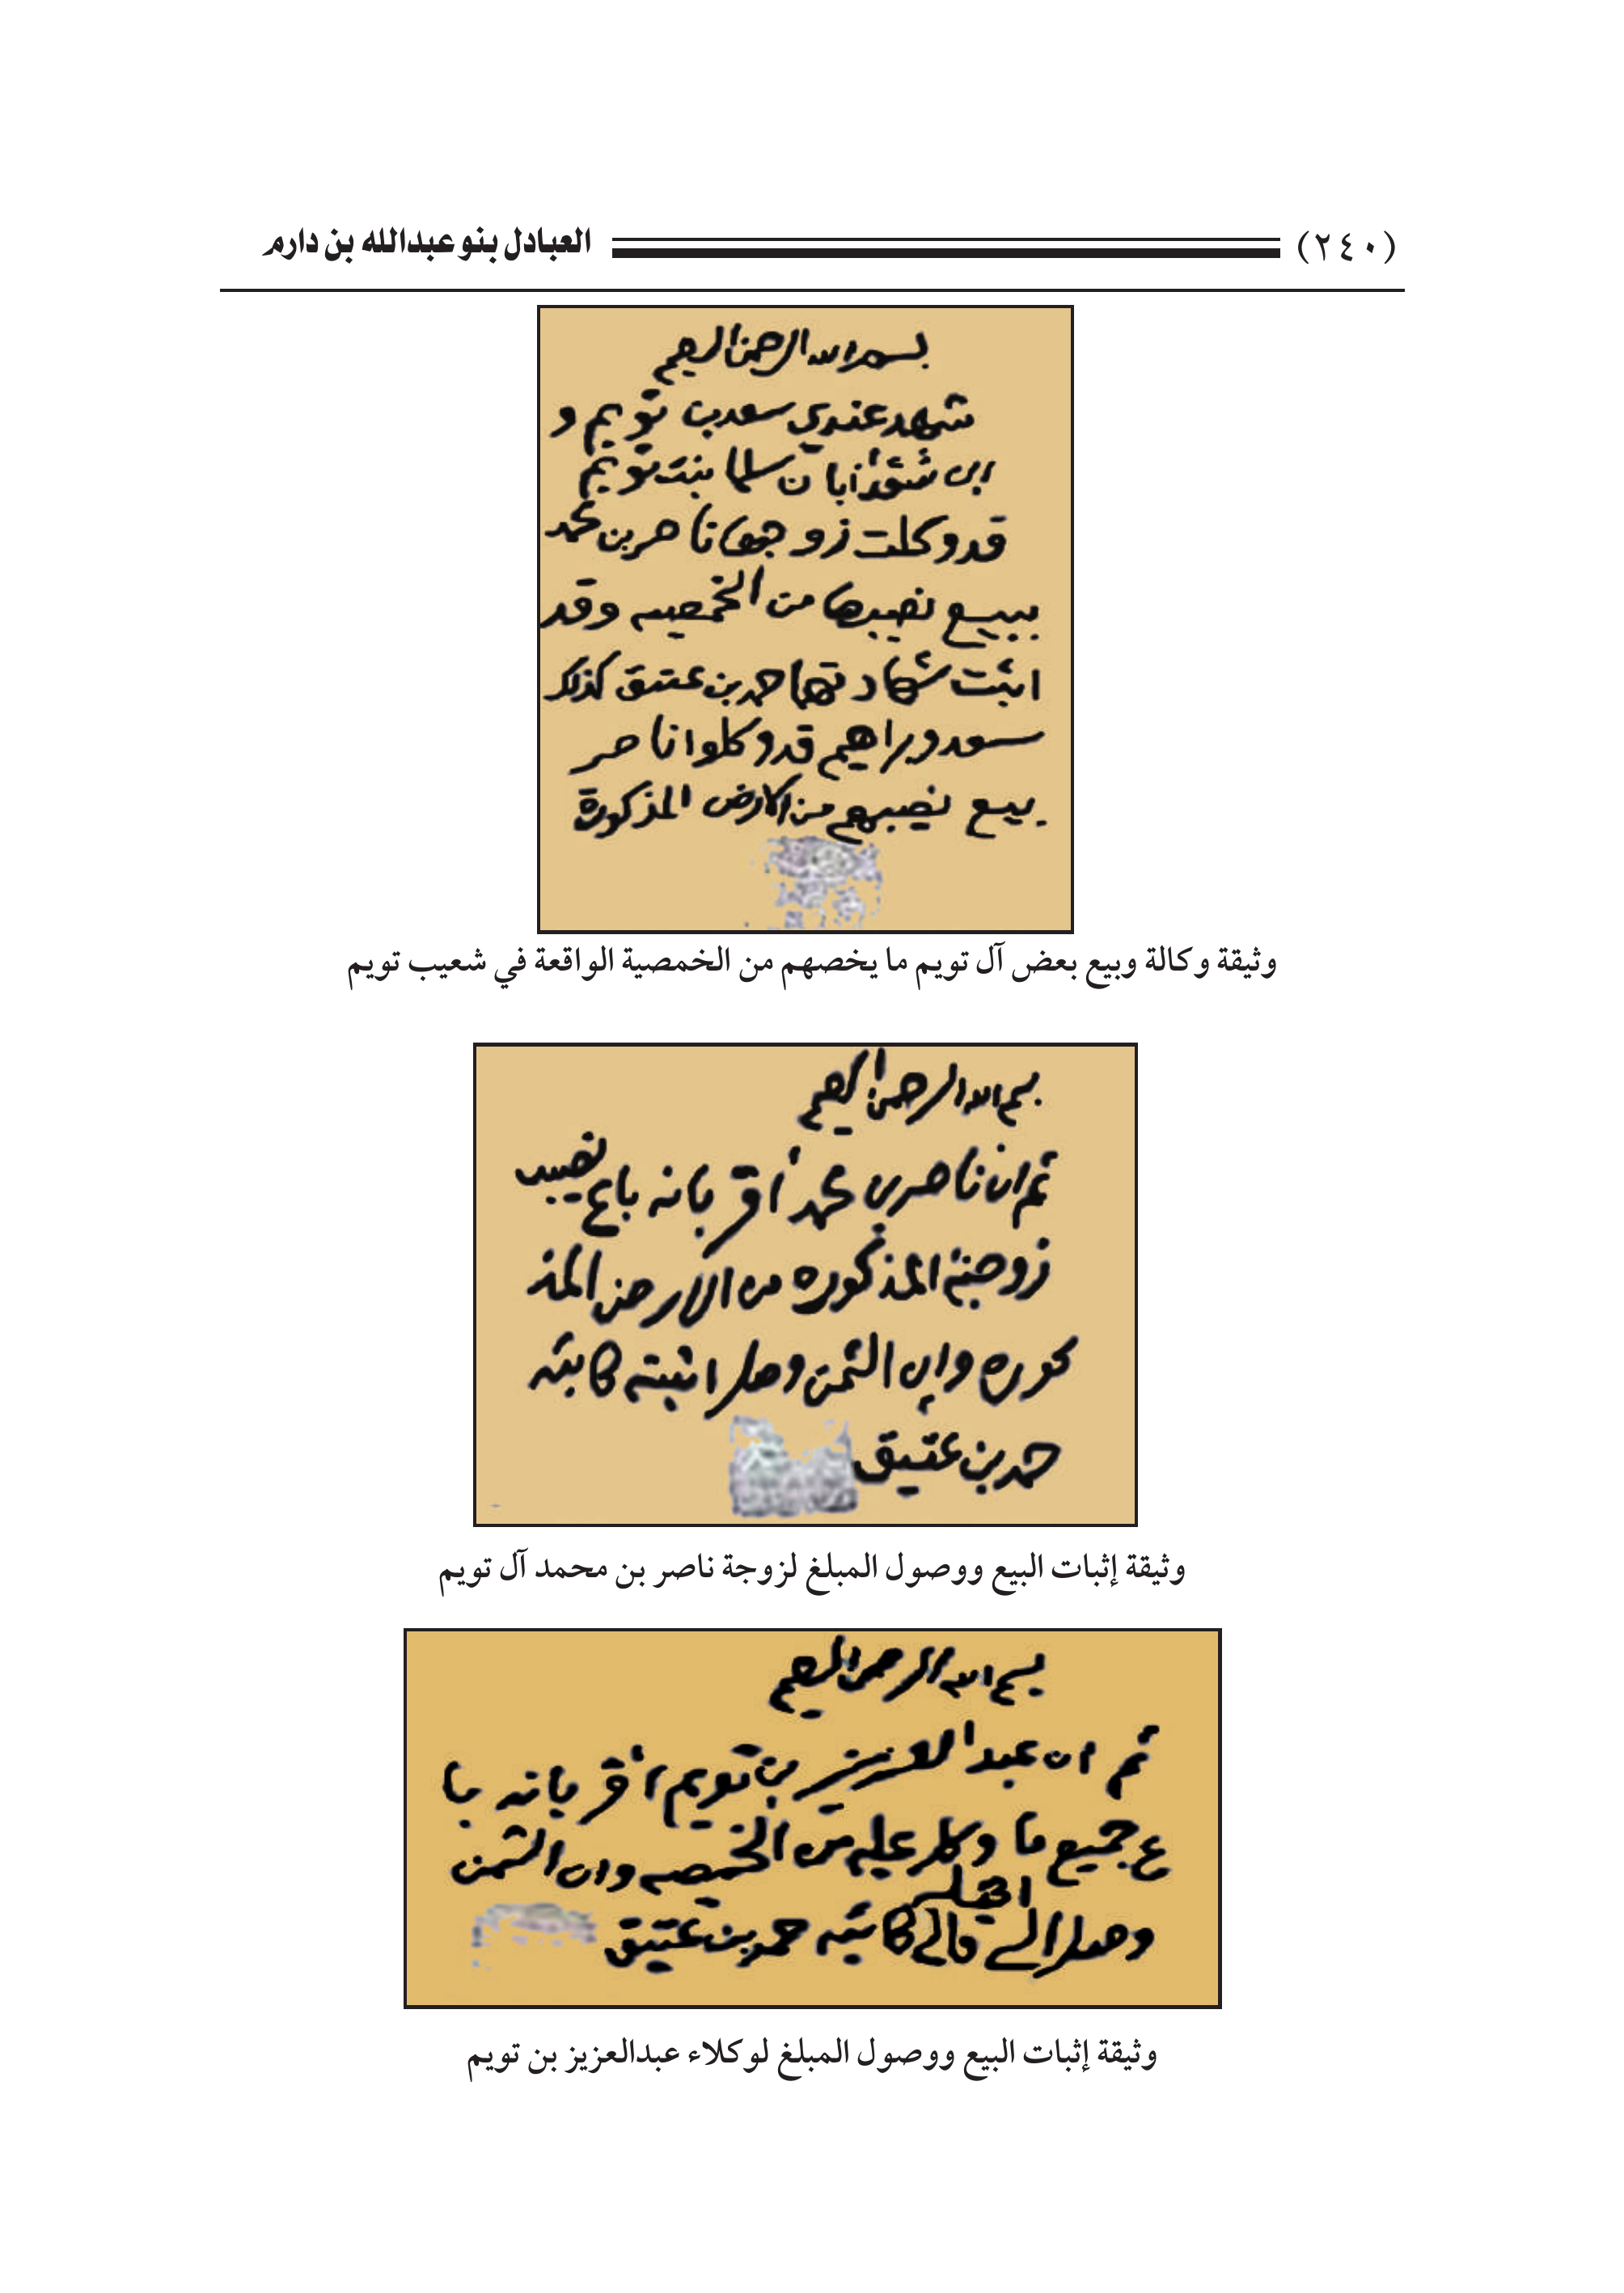 (٢٤٠) العبادل بنو عبدالله بن دارم
بسم الله الرحمن الرحيم
شهد عندي سعد بن تويم و
ابن شقران بان سلما بنت تويم
قد وكلت زوجها ناصر بن محمد
ببيع نصيبها من الخمصيه وقد
اثبت شهادتهما حمد بن عتيق كذلك
سعد وبراهيم قد وكلوا ناصر
بيع نصيبهم من الارض المذكورة
وثيقة وكالة وبيع بعض آل تويم ما يخصهم من الخمصية الواقعة في شعيب تويم
بسم الله الرحمن الرحيم
ثم ان ناصر بن محمد أقر بانه باع نصيب
زوجته المذكوره من الارض المذ
كوره وان الثمن وصل اثبته كاتبه
حمد بن عتيق
وثيقة إثبات البيع ووصول المبلغ لزوجة ناصر بن محمد آل تويم
بسم الله الرحمن الرحيم
ثم ان عبد العزيز بن تويم أقر بانه با
ع جميع ما وكل عليه من الخمصيه وان الثمن
وصل الي قال كاتبه حمد بن عتيق
وثيقة إثبات البيع ووصول المبلغ لوكلاء عبدالعزيز بن تويم